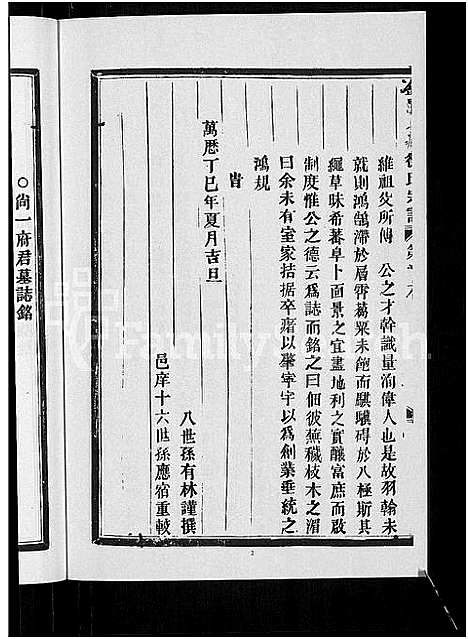 維祖父所傳　公之才幹識量洵偉人也是故羽翰未
就則鴻鵠滯於層霄葛粟未飽而騏驥碍於八極斯其
繩草昧希蕃阜卜面景之宜盡地利之實釀富庶而啟
制度惟公之德云爲誌而銘之曰佃彼蕪穢枝木之湄
曰余未有室家拮据卒瘏以肇宇以爲創業垂統之
鴻規
旹
萬曆丁巳年夏月吉旦
八世孫有林謹撰
邑庠十六世孫應宿重較
○尙一府君墓誌銘
2
FamilySearch